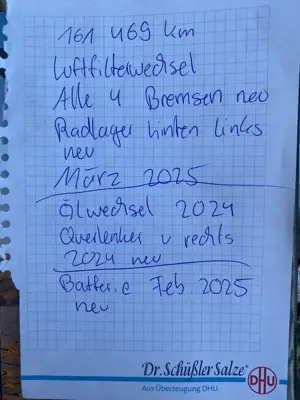 161 469 km
Luftfilterwechsel
Alle 4 Bremsen neu
Radlager hinten links
neu
März 2025
Ölwechsel 2024
Querlenker v rechts
2024 neu
Batterie Feb 2025
neu
Dr. Schüßler Salze®
Aus Überzeugung DHU
DHU